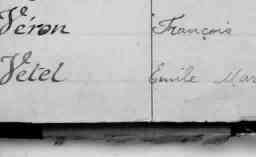 Véron François
Vetel Emile Mar